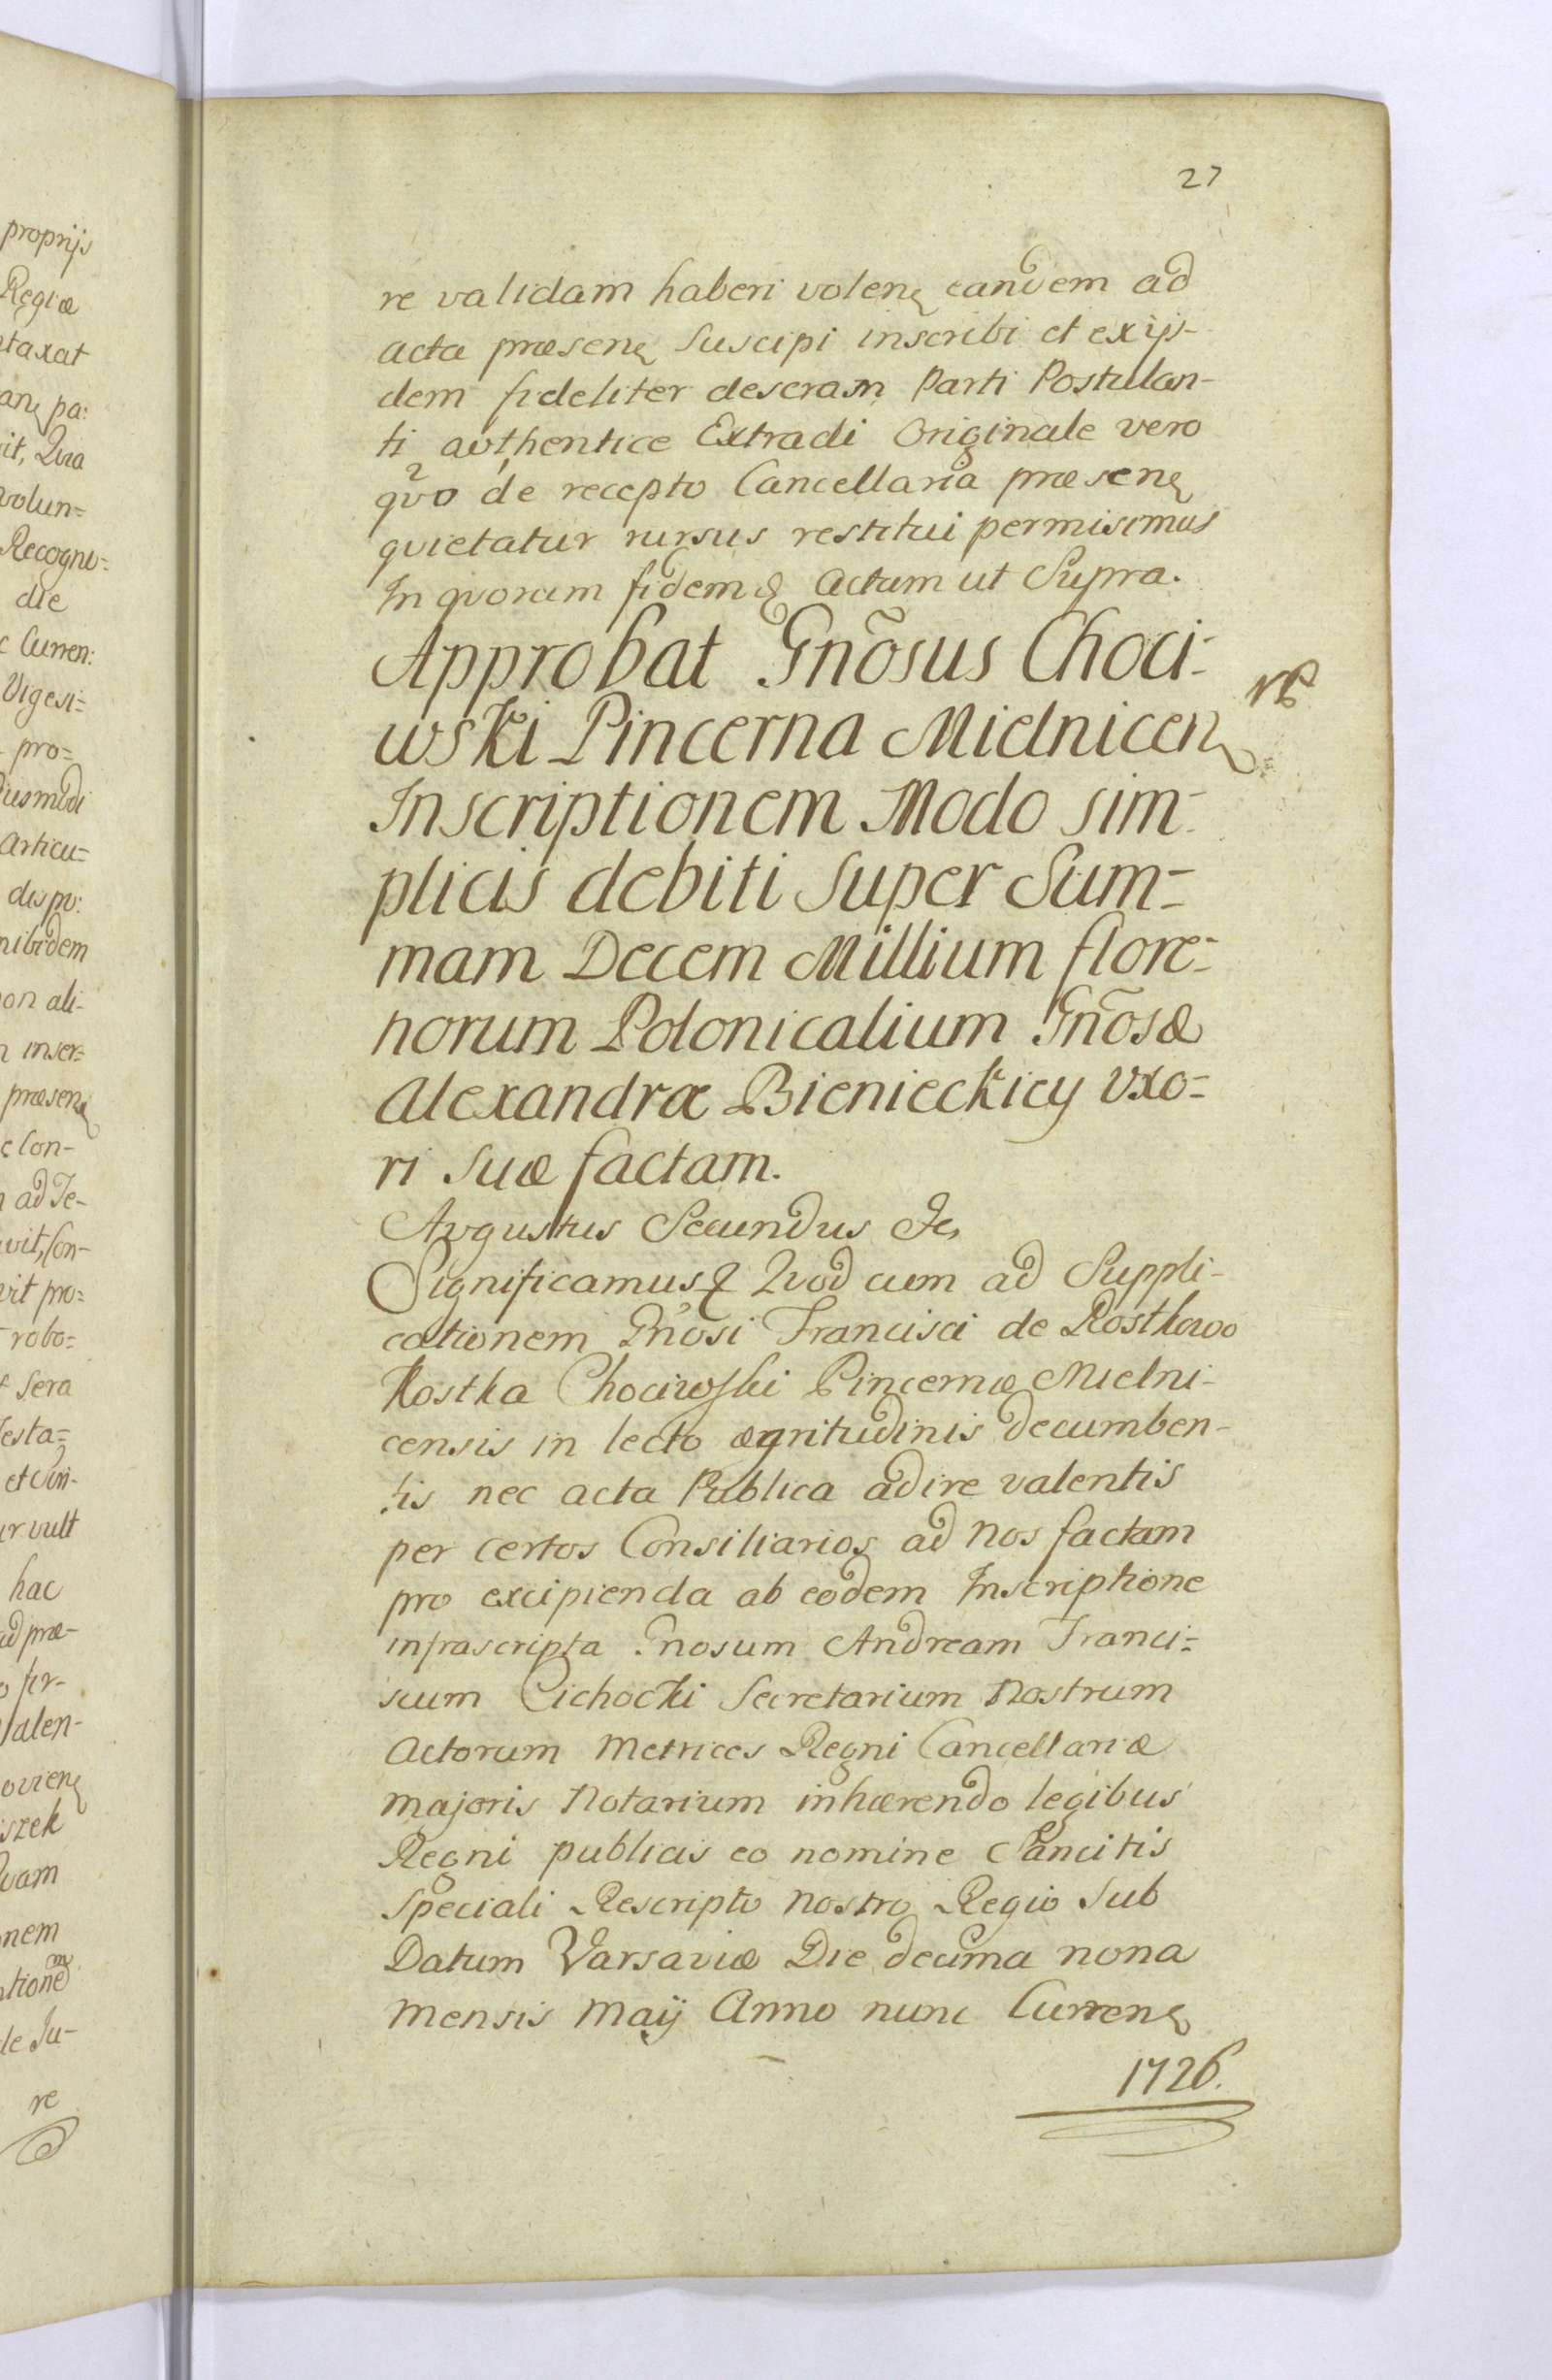 proprijs
Regiæ
taxat
pa:
it, Qua
volun=
Recogni=
die
c Curren:
Vigesi=
pro=
iusmodi
Articu=
dispo:
nibidem
on ali-
inser=
præsen
c Con-
ad Te-
vit, Con-
vit pro=
robo=
sera
esta=
et
ur vult
hac
ad præ-
fir-
alen-
ovien
iszek
vam
nem
tionem
le Ju-
re
27
re validam haberi volen eandem ad
acta præsen Suscipi inscribi et exijs-
dem fideliter descram Parti Postulan-
ti authentice Extradi Originale vero
quo de recepto Cancellaria præsen
quietatur rursus restitui permisimus
In quorum fidem & Actum ut Supra.
Approbat Gnõsus Choci-
wski Pincerna Mielnicen
Inscriptionem Modo sim-
plicis debiti Super Sum-
mam Decem Millium flore-
norum Polonicalium Gnõsæ
Alexandræ Bienieckiey Uxo-
ri Suæ factam.
Augustus Secundus &c
Significamus & Quod cum ad Suppli-
cationem Gnosi Francisci de Rostkowo
Kostka Chociwski Pincernæ Mielni-
censis in lecto ægritudinis decumben-
tis nec acta Publica adire valentis
per certos Consiliarios ad Nos factam
pro excipienda ab eodem Inscriptione
infrascripta Gnosum Andream Franci=
scum Cichocki Secretarium Nostrum
Actorum Metrices Regni Cancellariæ
Majoris Notarium inhærendo legibus
Regni publicis eo nomine Sancitis
Speciali Rescripto Nostro Regio Sub
Datum Varsaviæ Die decima nona
Mensis Maÿ Anno nunc Curren
1726.